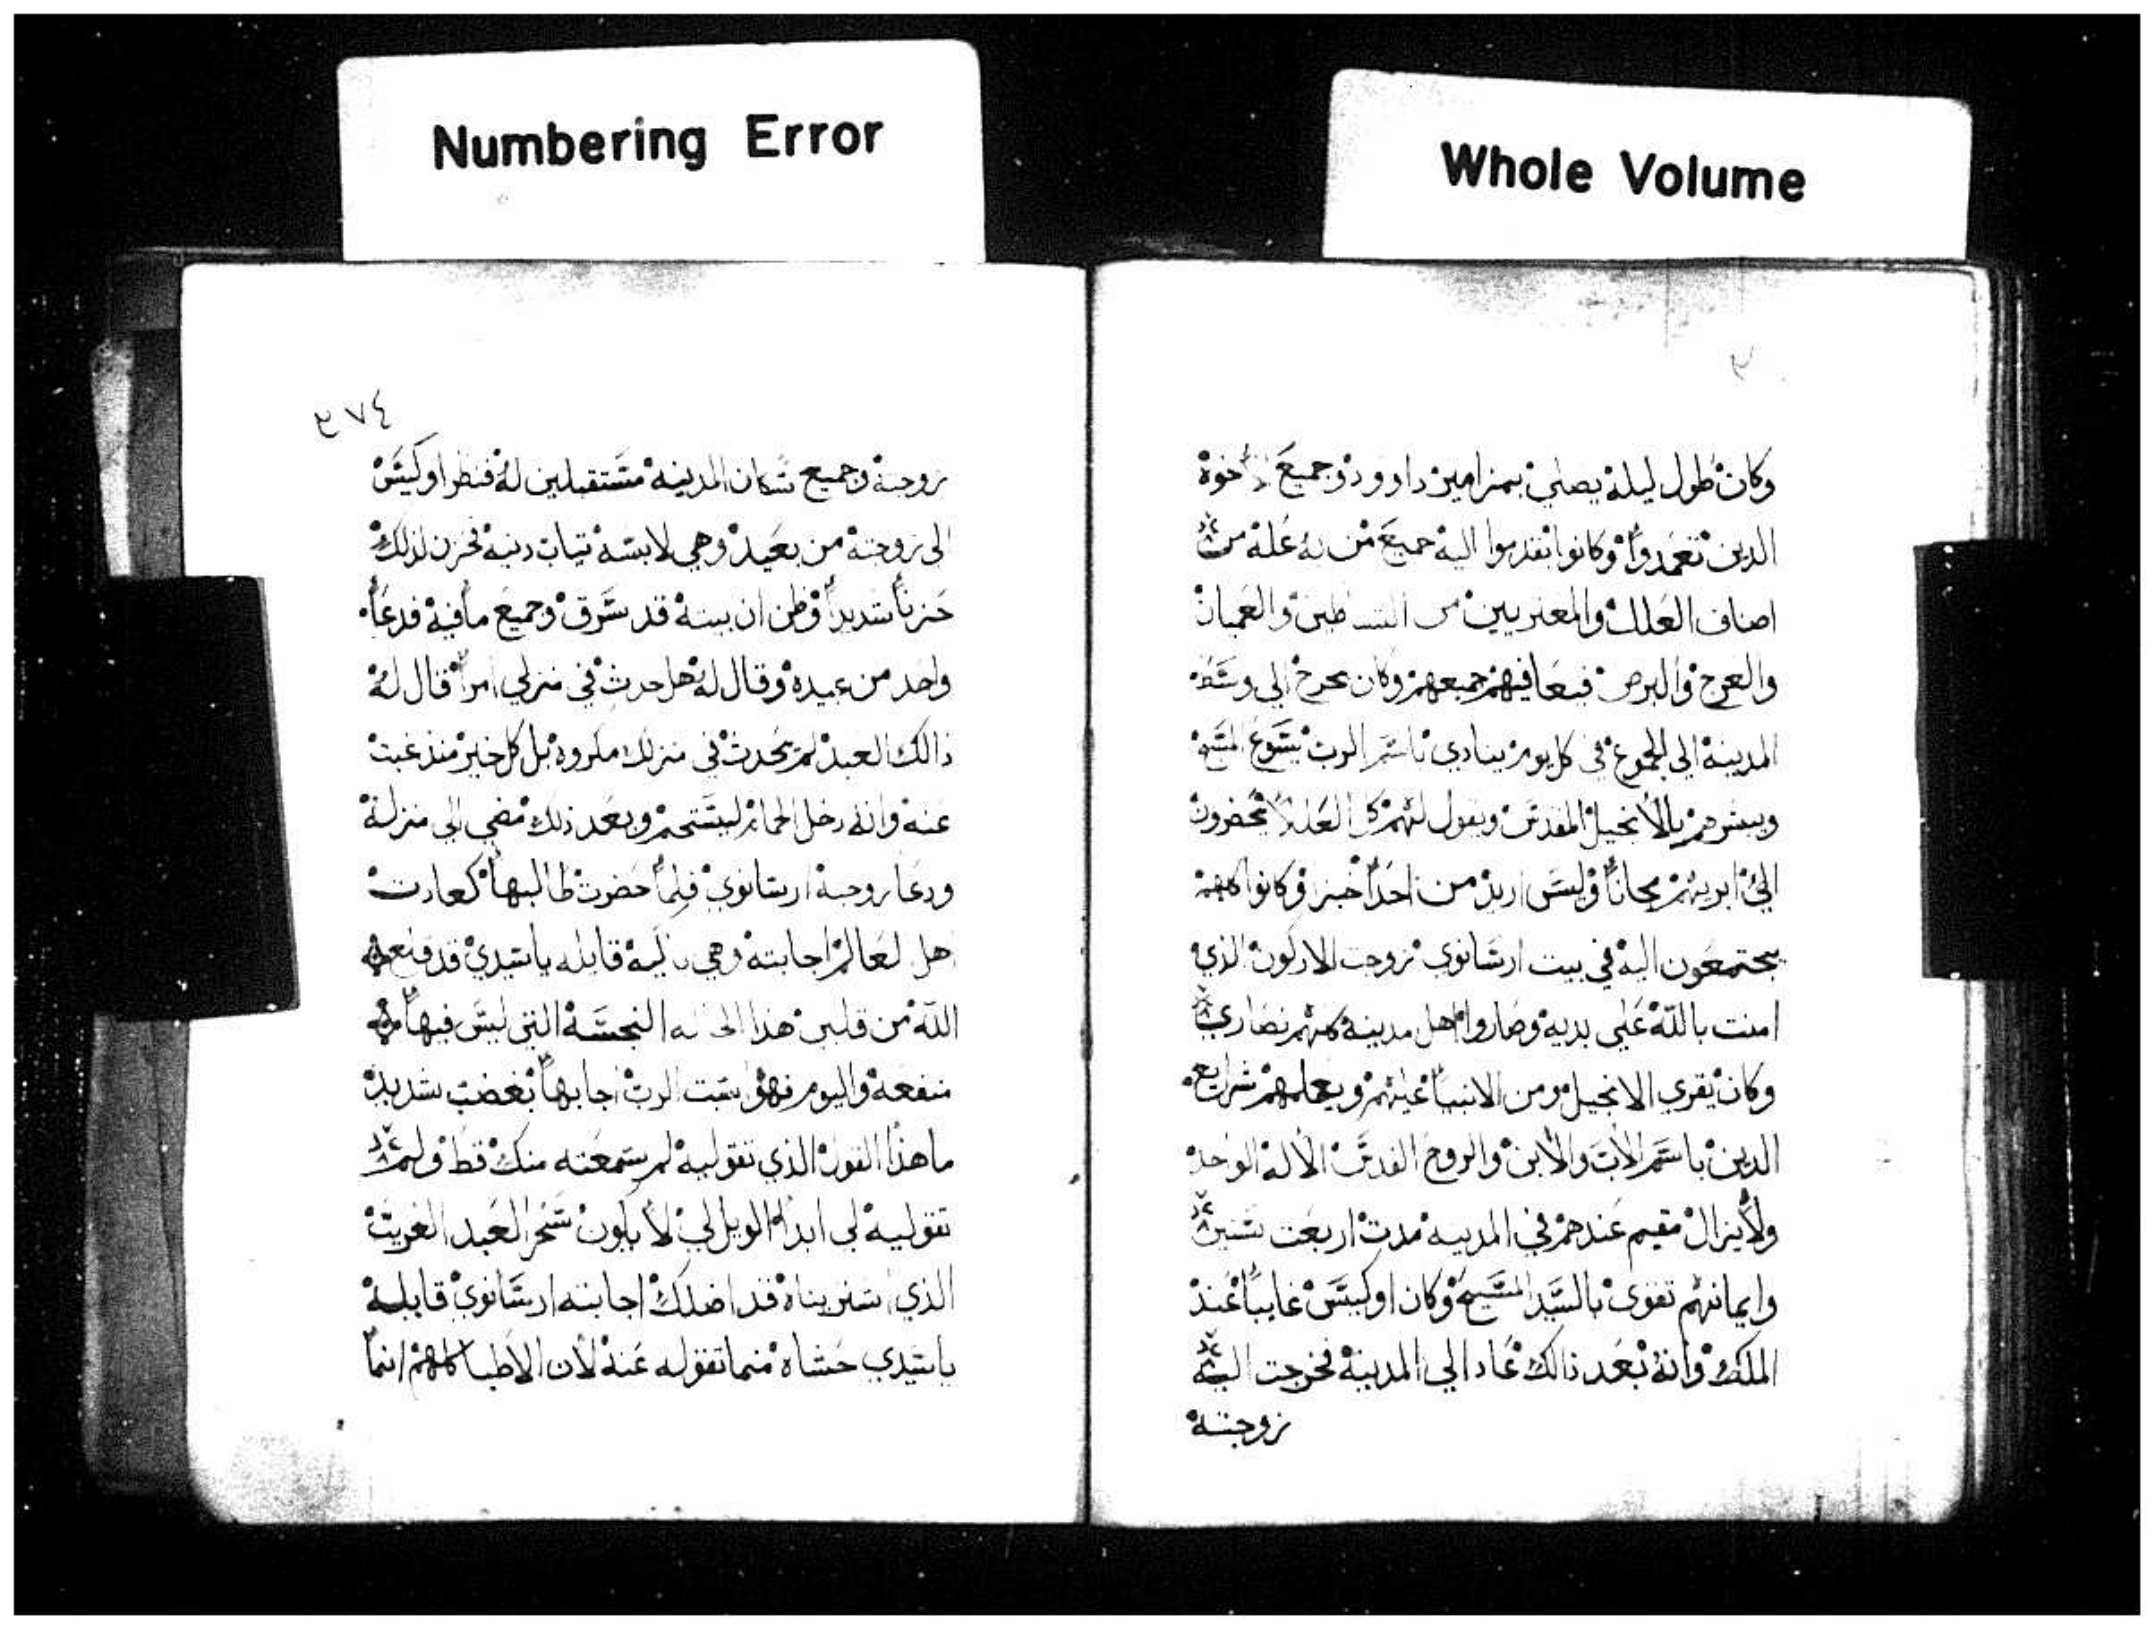 Numbering Error
Whole Volume
وكان طول ليلة يصلي بمزامير داوود وجميع الاخوة
الدين تعمدوا وكانوا يقدموا اليه جميع من به علة من
اصناف العلل والمعتريين من الشياطين والعميان
والعرج والبرص فيعافيهم جميعهم وكان يخرج الي وسط
المدينة الي الجموع في كل يوم ينادي باسم الرب يسوع المسيح
ويبشرهم بالانجيل المقدس ويقول لهم كل العلل تحضرون
الي ابريهم مجاناً وليس اريد من احداً خبز وكانوا كلهم
يجتمعون اليه في بيت ارسانوي زوجت الاركون الذي
امنت بالله علي يديه وصاروا اهل مدينة كلهم نصاري
وكان يقري الانجيل ومن الانبيا عليهم ويعلمهم شرايع
الدين باسم الاب والابن والروح القدس الاله الواحد
ولايزال مقيم عندهم في المدينه مدت اربعت سنين
وايمانهم تقوي بالسيد المسيح وكان اوكيس غايباً عند
الملك وانه بعد ذالك عاد الي المدينة فخرجت اليه
زوجته
٤٧٤
زوجتة وجميع سكان المدينه مستقبلين له فنظر اوكيس
الي زوجته من بعيد وهي لابسه تياب دنيه فحزن لذلك
حزناً شديداً وظن ان بيته قد سرق وجميع مافيه فدعا
واحد من عبيده وقال له هل حدث في منزلي امراً قال له
ذالك العبد لم يحدث في منزلك مكروه بل كل خير منذ غبت
عنه وانه دخل الحمام ليستحم وبعد ذلك مضي الي منزله
ودعا زوجة ارسانوي فلما حضرت طالبها كعادت
اهل لعالم اجابته وهي باكيه قايله ياسيدي قد قلع
الله من قلبي هذا النجسة التي ليس فيها
منفعه واليوم فهو سبت الرب اجابها بغضب شديد
ماهذا القول الذي تقوليه لم سمعته منك قط ولم
تقوليه لي ابداً الويل لي لا يكون سحر العبد الغريب
الذي اشتريناه قد اضلك اجابته ارسانوي قايلة
ياسيدي حشاه مما تقوله عنه لان الاطبا كلهم انما